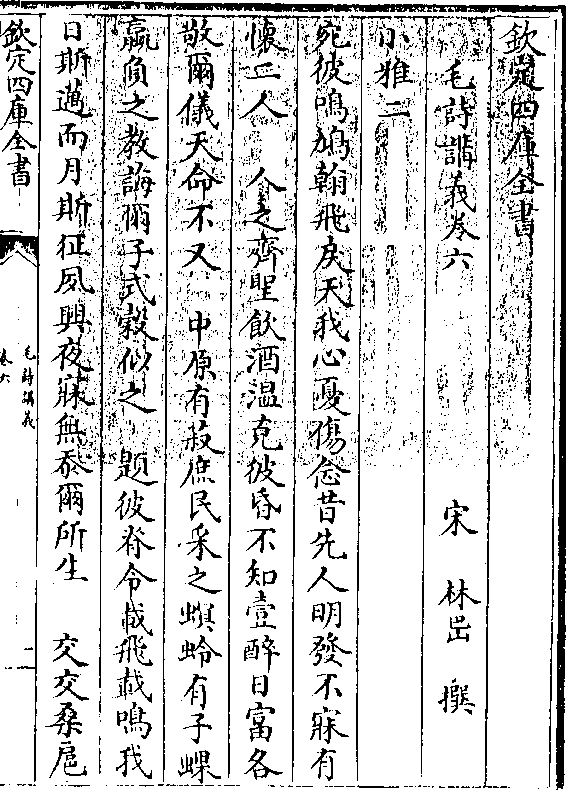 欽定四庫全書
毛詩講義卷六
宋 林岊 撰
小雅二
宛彼鳴鳩翰飛戾天我心憂傷念昔先人明發不寐有
懷二人 人之齊聖飲酒溫克彼昏不知壹醉日富各
敬爾儀天命不又 中原有菽庶民采之螟蛉有子蜾
蠃負之教誨爾子式穀似之 題彼脊令載飛載鳴我
日斯邁而月斯征夙興夜寐無忝爾所生 交交桑扈
欽定四庫全書
毛詩講義
卷六